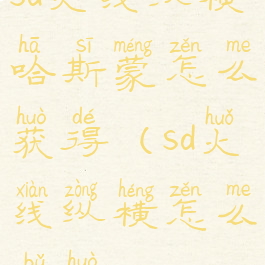 hā sī méng zěn me
哈斯蒙怎么
huò dé huǒ
获得（sd火
xiàn zòng héng zěn me
线纵横怎么
bǔ huò